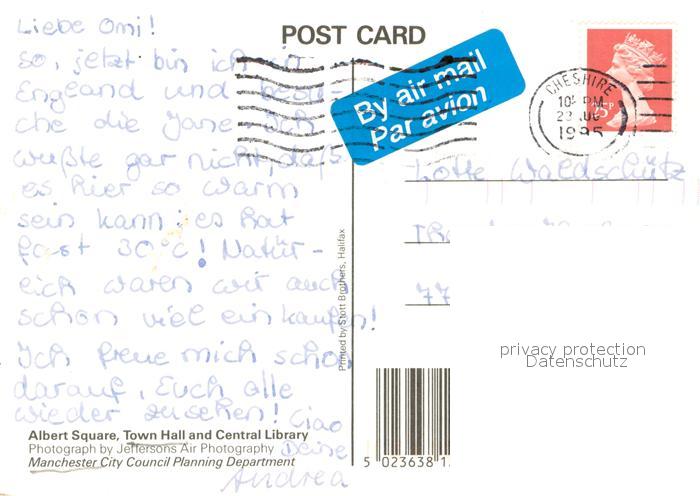 POST CARD
Liebe Omi!
So, jetzt bin ich in
England und besu-
che die Jane. Ich
wußte gar nicht, daß
es hier so warm
sein kann: es hat
fast 30°C! Natür-
lich waren wir auch
schon viel einkaufen!
Ich freue mich schon
darauf, Euch alle
wieder zu sehen! Ciao
Deine
Andrea
Albert Square, Town Hall and Central Library
Photograph by Jeffersons Air Photography
Manchester City Council Planning Department
Printed by Stott Brothers, Halifax
By air mail
Par avion
CHESHIRE
PM
1995
Lotte Waldschütz
77
privacy protection
Datenschutz
5 023638 1